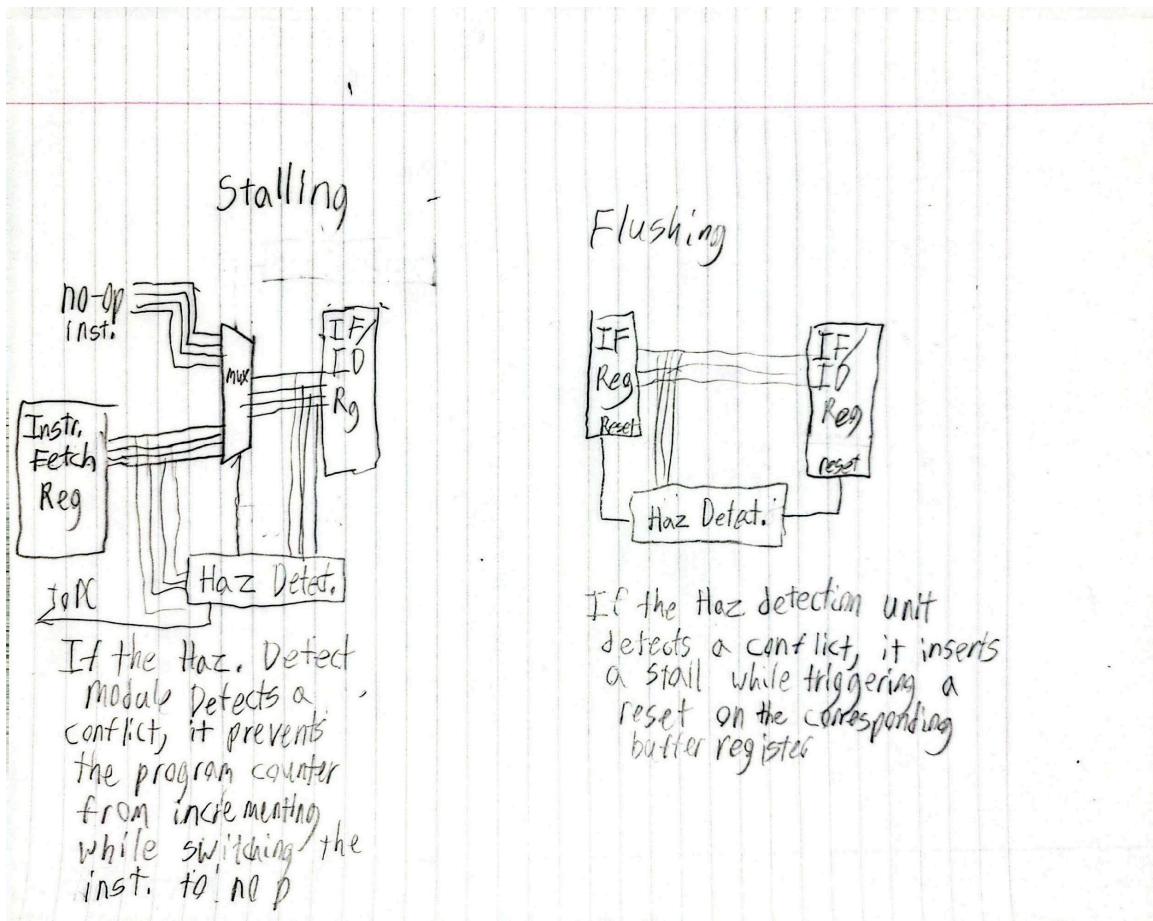 Stalling
no-op
inst.
mux
IF/
ID
Rg
Instr.
Fetch
Reg
Haz Detect.
to PC
If the Haz. Detect
module Detects a
conflict, it prevents
the program counter
from incrementing
while switching the
inst. to no p
Flushing
IF
Reg
Reset
IF/
ID
Reg
reset
Haz Detect.
If the Haz detection unit
detects a conflict, it inserts
a stall while triggering a
reset on the corresponding
buffer register